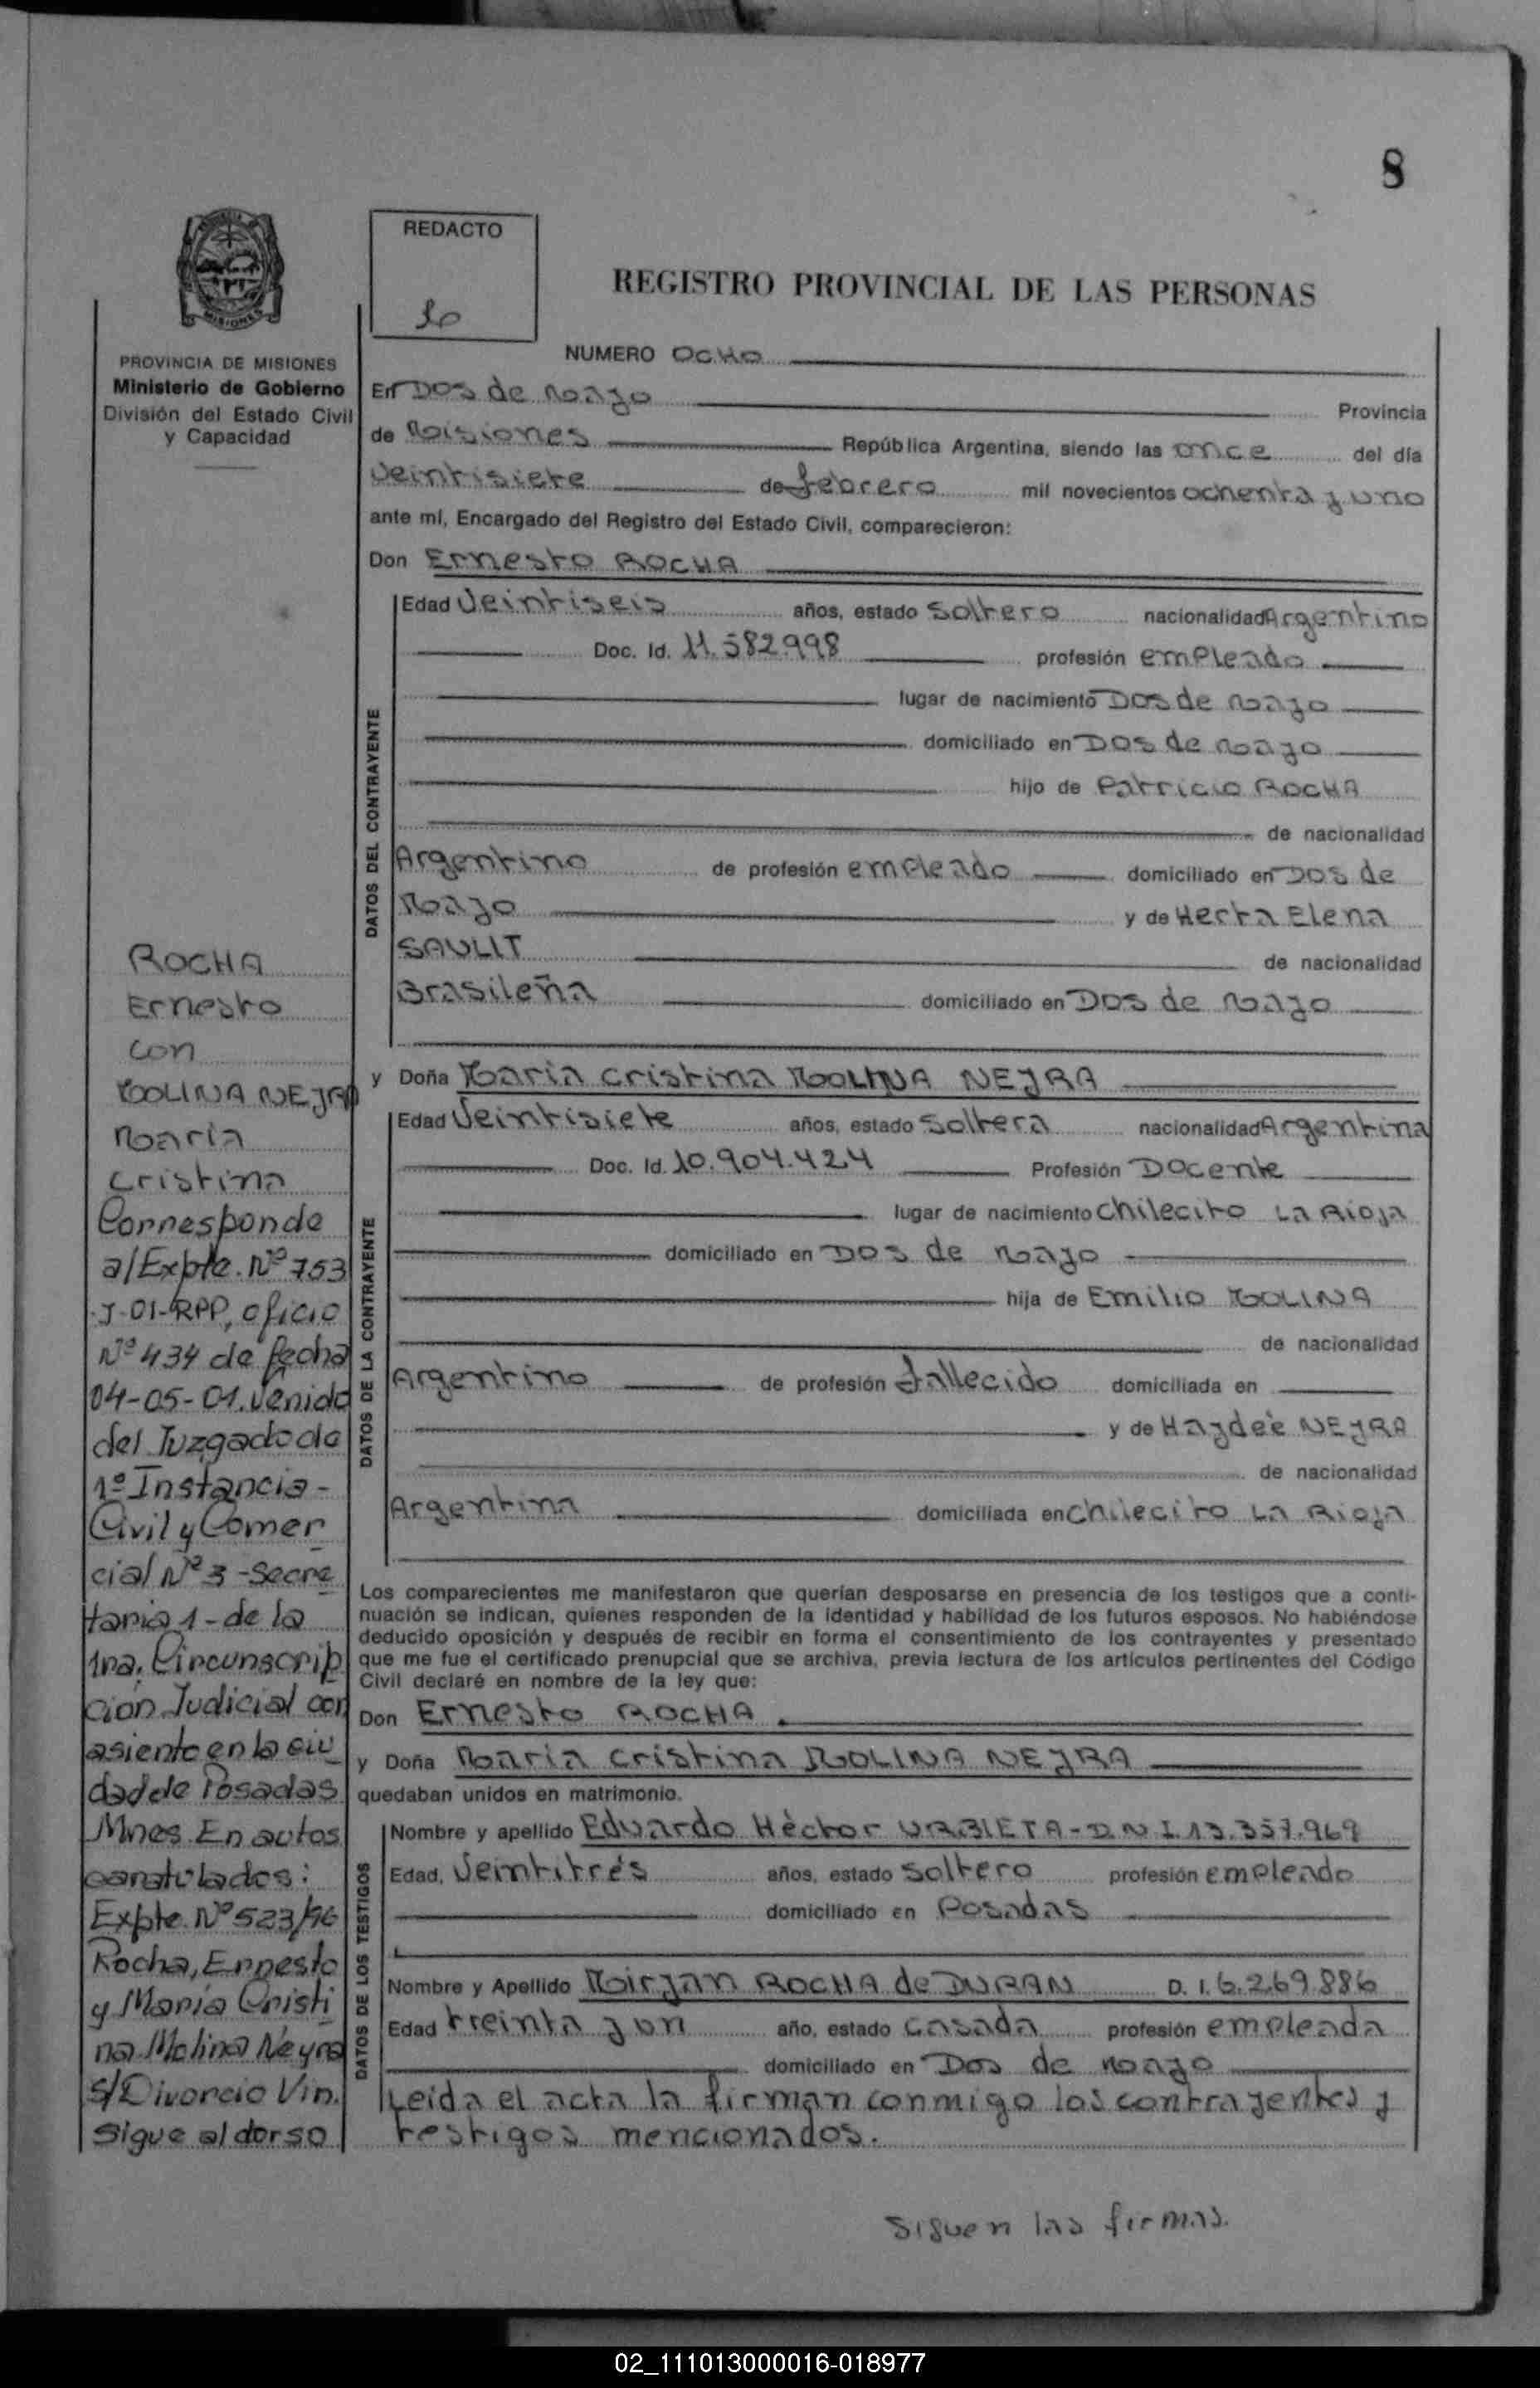 8
REDACTO
REGISTRO PROVINCIAL DE LAS PERSONAS
MISIONES
PROVINCIA DE MISIONES
Ministerio de Gobierno
División del Estado Civil
y Capacidad
ROCHA
Ernesto
con
MOLINA NEYRA
Maria
Cristina
Corresponde
a/Expte. Nº 753
J-01-RPP, oficio
Nº 434 de fecha
04-05-01. venido
del Juzgado de
1º Instancia-
Civil y Comer
cial Nº 3 -Secre
taria 1-de la
1ra. Circunscrip
ción Judicial con
asiento en la ciu
dad de Posadas
Mnes. En autos
caratulados:
Expte. Nº 523/96
Rocha, Ernesto
y Maria Cristi
na Molina Neyra
S/Divorcio Vin.
Sigue al dorso
NUMERO OCHO
En DOS de Mayo Provincia
de Misiones República Argentina, siendo las once del día
Veintisiete de febrero mil novecientos ochenta y uno
ante mí, Encargado del Registro del Estado Civil, comparecieron:
Don Ernesto ROCHA
DATOS DEL CONTRAYENTE
Edad Veintiseis años, estado Soltero nacionalidad Argentino
Doc. Id. 11.582.998 profesión empleado
lugar de nacimiento Dos de Mayo
domiciliado en Dos de Mayo
hijo de Patricio ROCHA
de nacionalidad
Argentino de profesión empleado domiciliado en Dos de
Mayo y de Herta Elena
SAULIT de nacionalidad
Brasileña domiciliado en Dos de Mayo
y Doña Maria Cristina MOLINA NEYRA
DATOS DE LA CONTRAYENTE
Edad Veintisiete años, estado Soltera nacionalidad Argentina
Doc. Id. 10.904.424 Profesión Docente
lugar de nacimiento Chilecito La Rioja
domiciliado en Dos de Mayo
hija de Emilio MOLINA
de nacionalidad
Argentino de profesión fallecido domiciliada en
y de Haydeé NEYRA
de nacionalidad
Argentina domiciliada en Chilecito La Rioja
Los comparecientes me manifestaron que querían desposarse en presencia de los testigos que a conti-
nuación se indican, quienes responden de la identidad y habilidad de los futuros esposos. No habiéndose
deducido oposición y después de recibir en forma el consentimiento de los contrayentes y presentado
que me fue el certificado prenupcial que se archiva, previa lectura de los artículos pertinentes del Código
Civil declaré en nombre de la ley que:
Don Ernesto ROCHA
y Doña Maria Cristina MOLINA NEYRA
quedaban unidos en matrimonio.
DATOS DE LOS TESTIGOS
Nombre y apellido Eduardo Héctor URBIETA-D.N.I. 13.357.969
Edad, Veintitrés años, estado soltero profesión empleado
domiciliado en Posadas
Nombre y Apellido Miryan ROCHA de DURAN D. I. 6.269.886
Edad treinta y un año, estado casada profesión empleada
domiciliado en Dos de Mayo
Leida el acta la firman conmigo los contrayentes y
testigos mencionados.
Siguen las firmas.
02_111013000016-018977